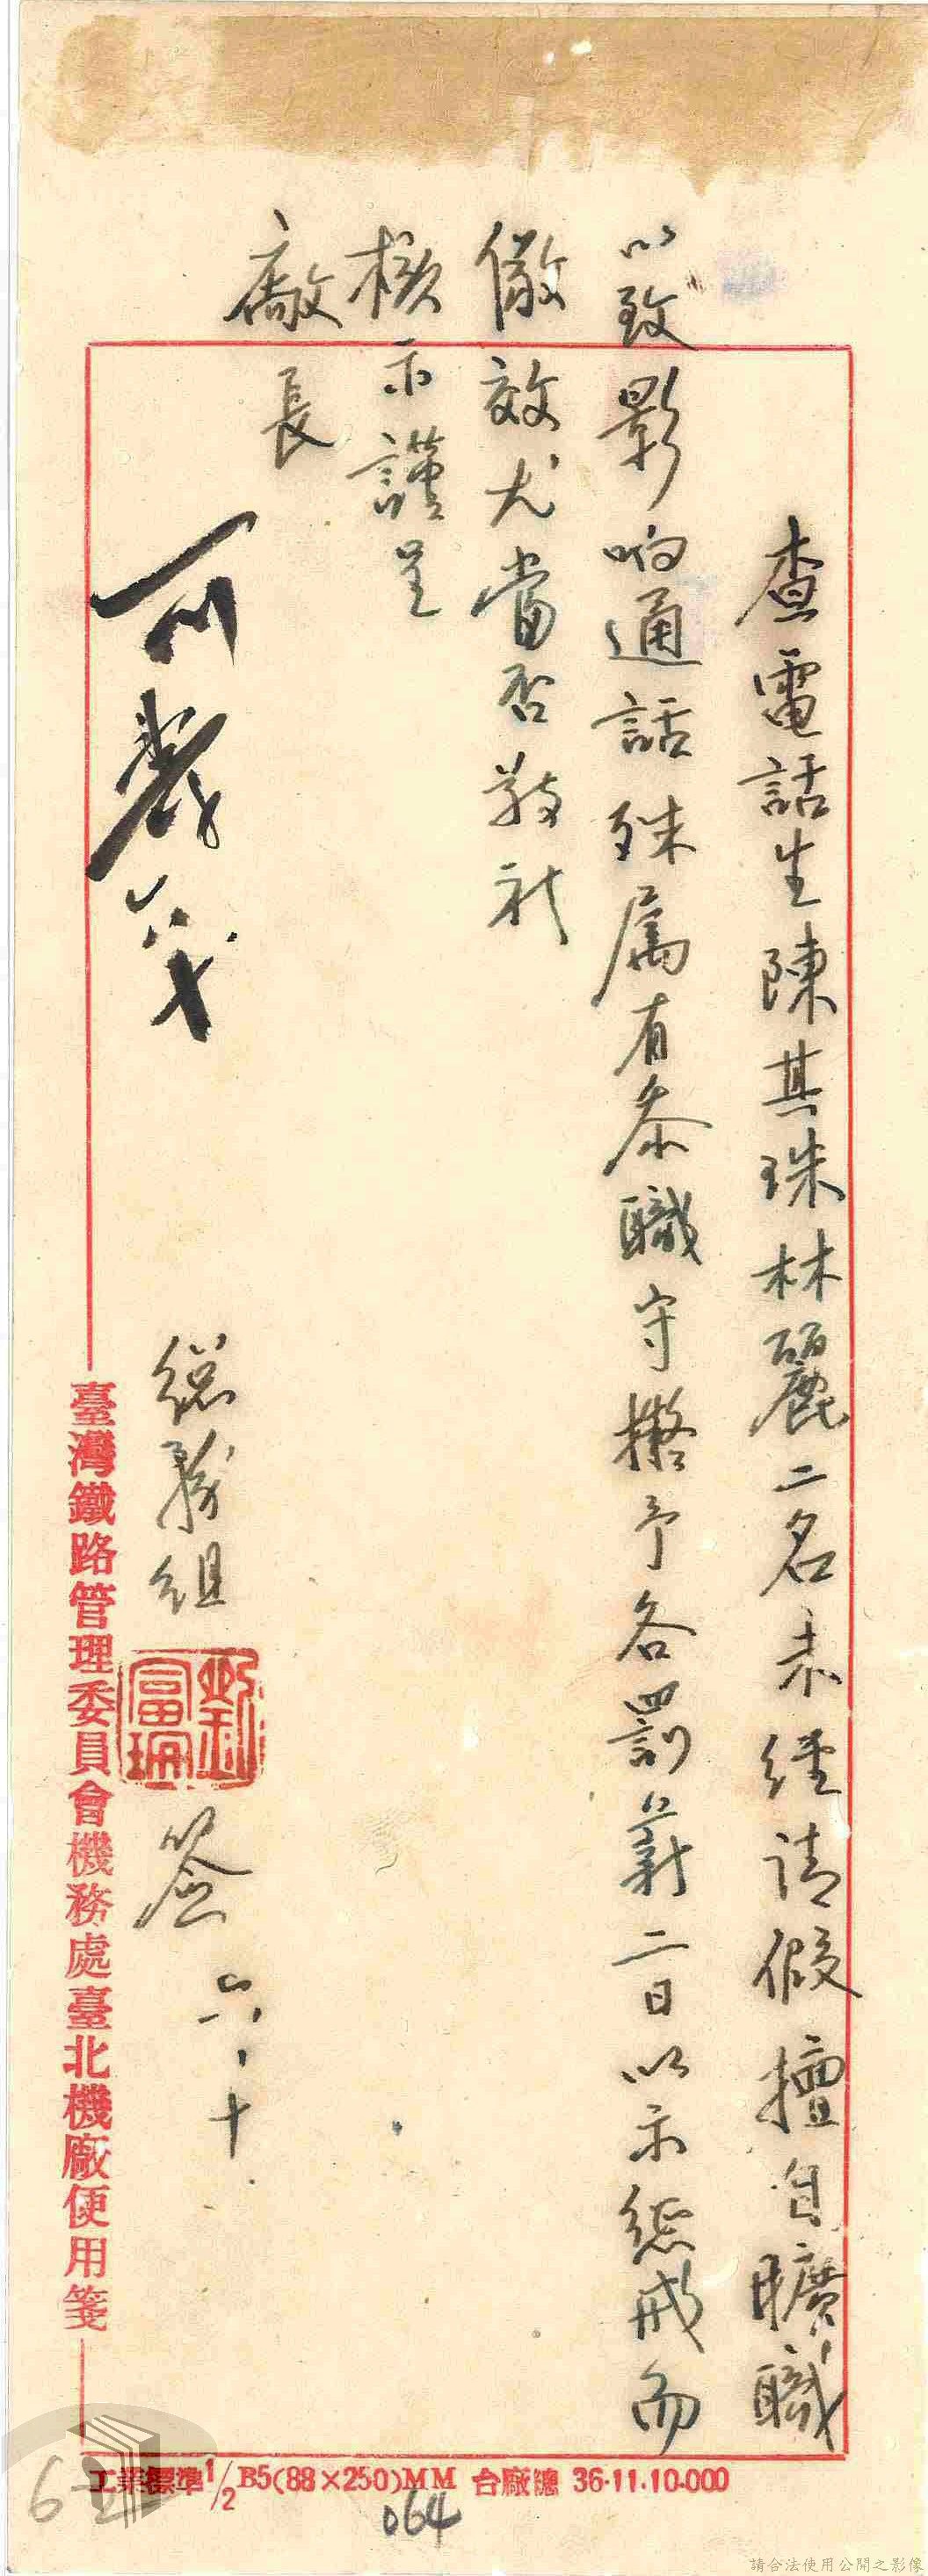 查電話生陳其珠林麗二名未經請假擅自曠職
以致影响通話殊属有忝職守擬予各罰薪二日以示懲戒而
儆效尤當否敬祈
核示謹呈
廠長
總務組 劉富 簽 六、十、
臺灣鐵路管理委員會機務處臺北機廠便用箋
工業標準1/2 B5(88×250)MM 台廠總 36·11·10·000
064
請合法使用公開之影像